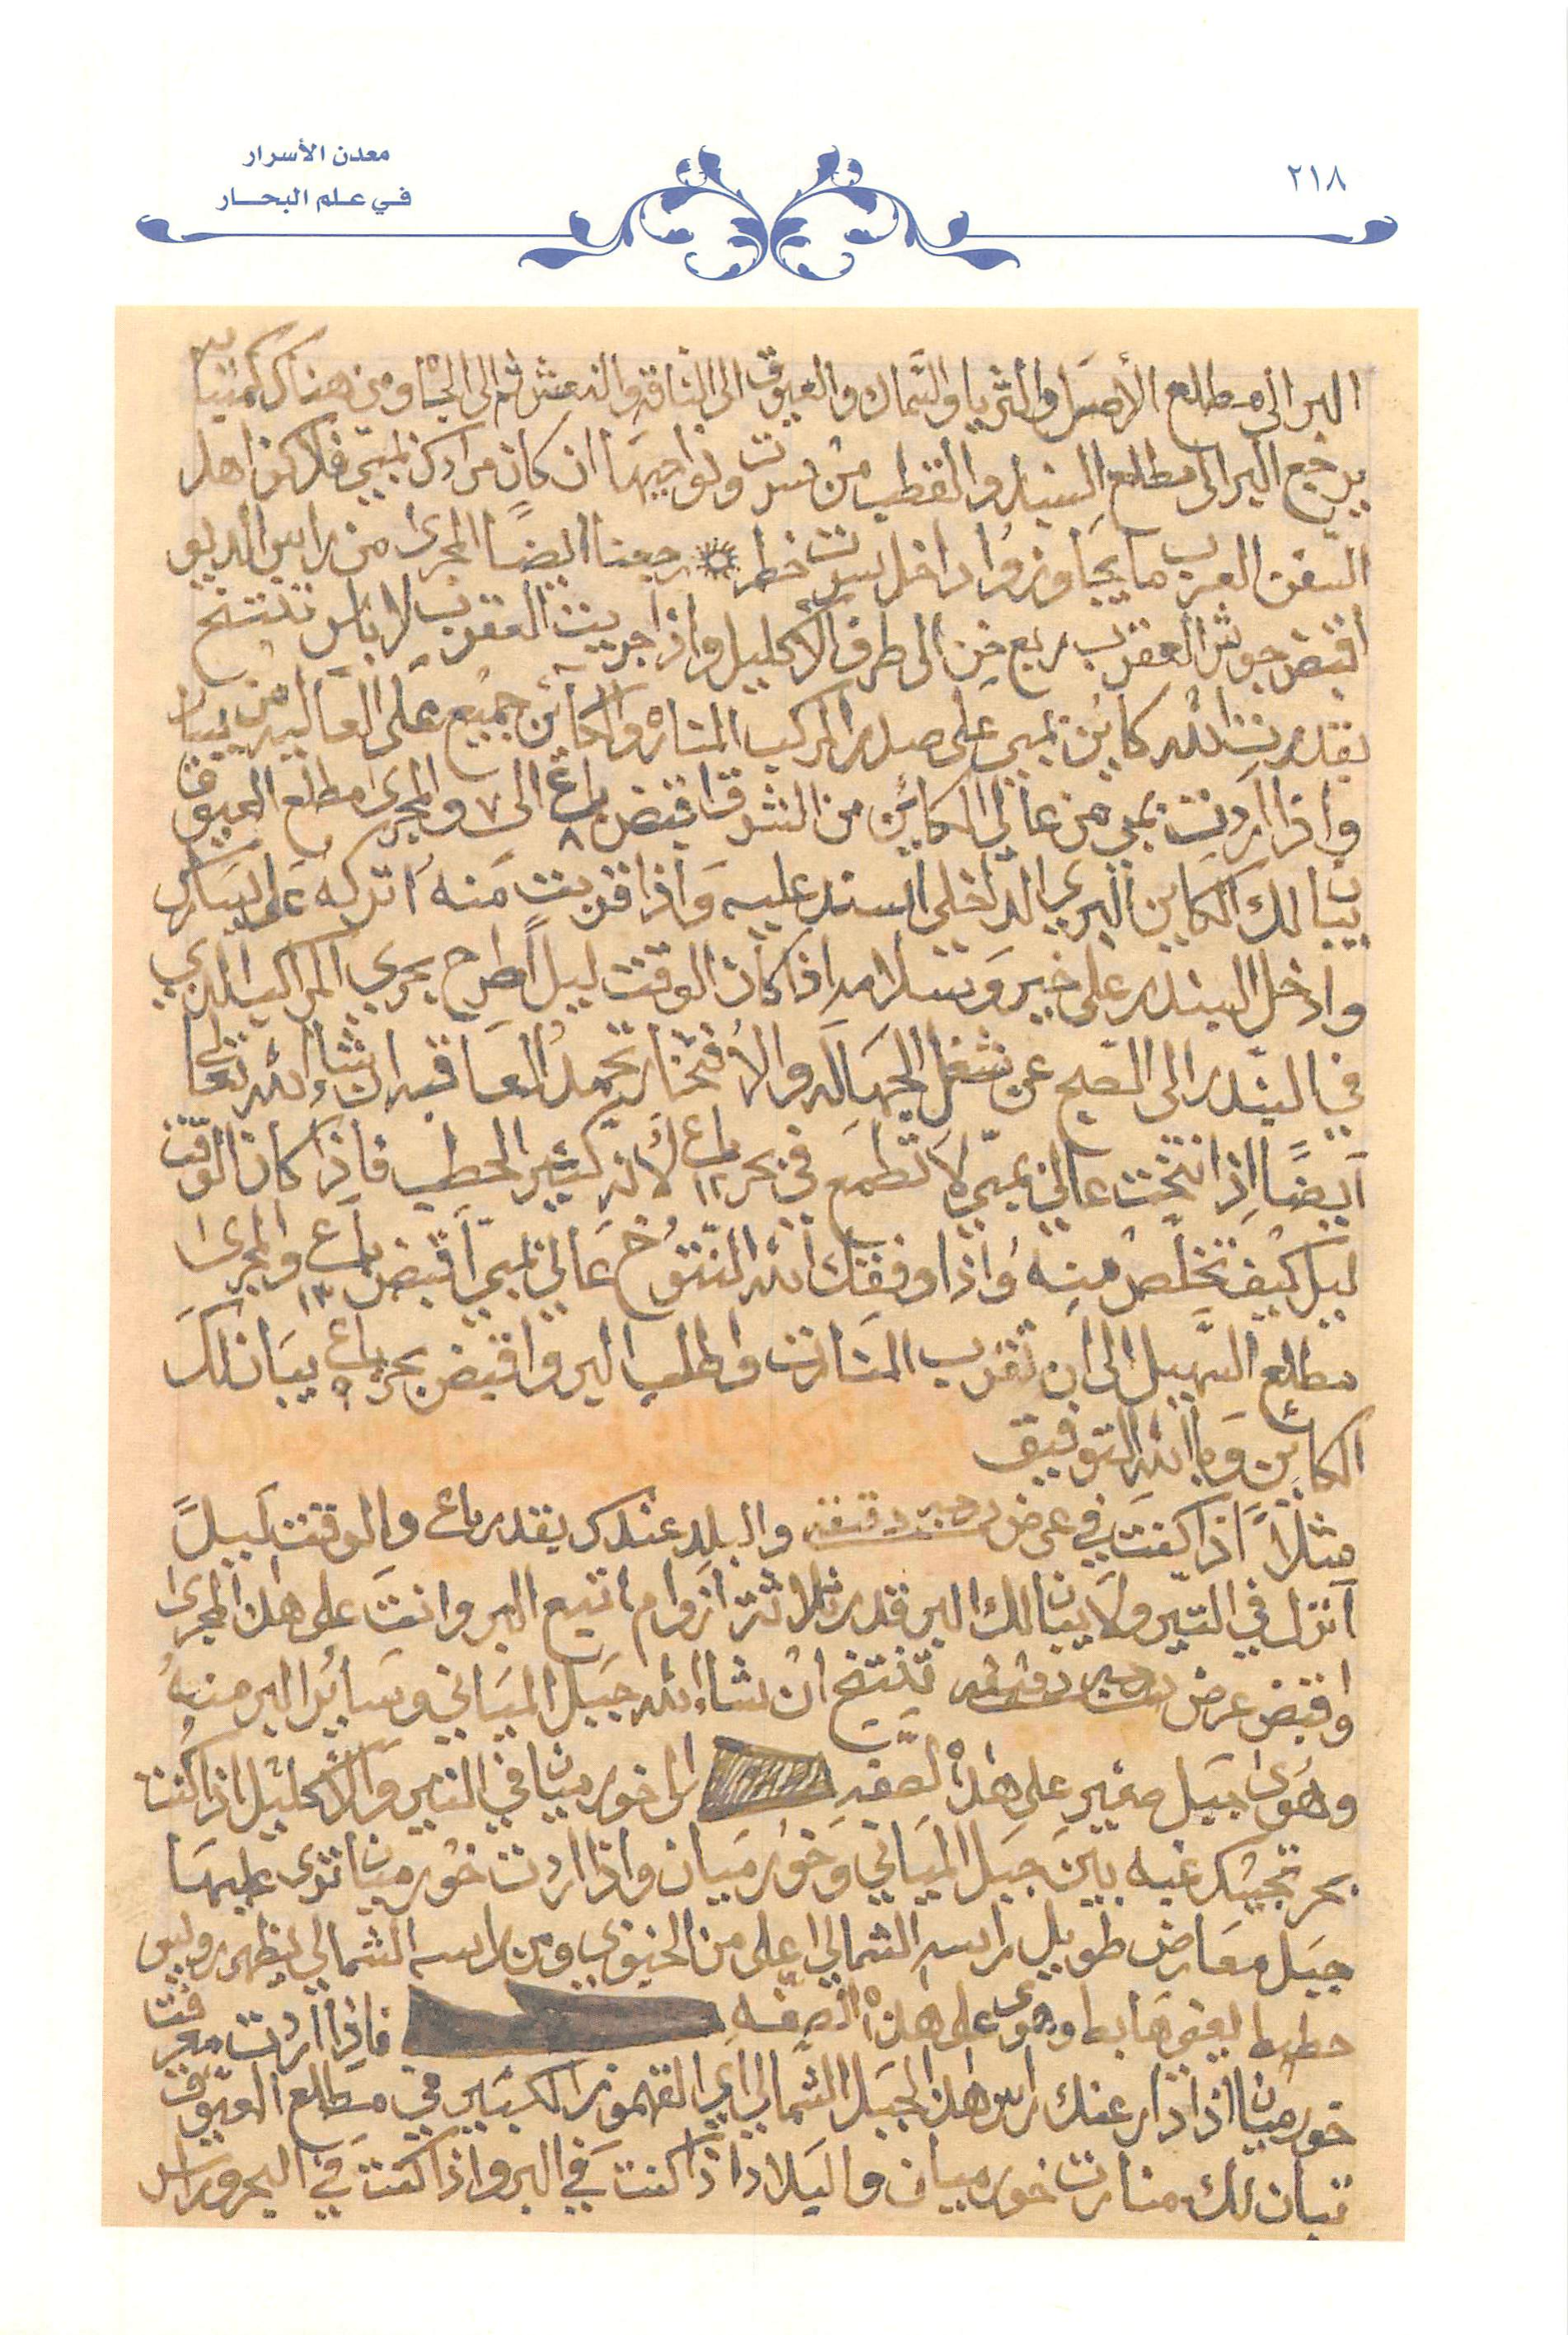 معدن الأسرار
في علم البحار
٢١٨
البر الى مطلع الأصل والثريا والسماك والعيوق الى الناقه والنعش ثم الى الجاه ومن هناك كمنباية
يرجع البر الى مطلع السنبار والقطب من سرت ونواحيها ان كان مرادك نميى فلا كن اهل
السفن العرب ما يجاوزوا داخل سرت خطر رجعنا ايضًا المجرى من راس الديو
اقبض جوش العقرب ربع خن الى طرف الاكليل واذا جريت العقرب لا باس تنتخ
بقدرت الله كاين نميى على صدر المركب المناره والكاين جميع على العاليه من يسار
واذا اردت نميى من عالي الكاين من الشرق اقبض باع ٨ الى ٧ والمجرى مطلع العيوق
يبان لك الكاين البري الداخلي اسند عليه وَاذا قربت منه اتركه على يسارك
وادخل البندر على خير وَسلامه اذا كان الوقت ليلاً اطرح بحري المراكب الذي
في البندر الى الصبح عن شغل الجهاله والافتخار تحمد العاقبه ان شاء الله تعالى
ايضًا اذا نتخت عالي نميى لا تطمع في بحر باع ١٢ لانه كثير الحطب فاذا كان الوقت
ليل كيف تخلص منه وَاذا وفقك الله النتوخ عالي نميى اقبض باع ١٣ والمجرى
مطلع السهيل الى ان تقرب المنارت واطلب البر واقبض بحر باع ٩ يبان لك
الكاين وَبا الله التوفيق
مثلاً اذا كنت في عرض درجه دقيقه والبلد عندك بقدر باع والوقت ليلً
انزل في التير ولا يبان لك البر قدر ثلاثة ازوام اتبع البر وانت على هذا المجرى
واقبض عرض درجه دقيقه تنتخ ان شاء الله جبل المياني وسائر البر منه
وهوى جبل صغير على هذه الصفه الى خور ميان في التير والاكليل اذا كنت
بحر تجيك غبه بين جبل المياني وَخور ميان واذا اردت خور ميان ترى عليها
جبل معارض طويل راسه الشمالي اعلى من الجنوبي ومن راسه الشمالي يظهر وليس
حطيط يعني هابط وهوى على هذه الصفه فاذا اردت معرفت
خور ميان اذا دار عنك راس هذا الجبل الشمالي اي القهموز الكبير في مطلع العيوق
تبان لك منارت خور ميان واليلاد اذا كنت في البر واذا كنت في البحر وراس